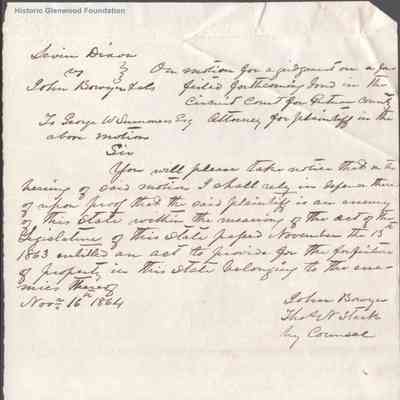 Historic Glenwood Foundation
Levin Dixon
vs } On motion for a judgment on a for
John Bowyer & als feited forthcoming bond in the
Circuit Court for Putnam County
To George W Summers Esq Attorney for plaintiff in the
above motion
Sir
You will please take notice that on the
hearing of said motion I shall rely in defence there
of upon proof that the said plaintiff is an enemy
of this State within the meaning of the act of the
Legislature of this State passed November the 13th
1863 entitled an act to provide for the forfeiture
of property in this State belonging to the ene-
mies thereof
Novr 16th 1864
John Bowyer
Thos N
by Counsel